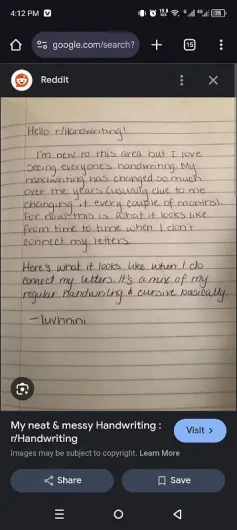 4:12 PM
google.com/search?
15
Reddit
Hello r/Handwriting!
I'm new to this area but I love
seeing everyone's handwriting. My
handwriting has changed so much
over the years (usually due to me
changing it every couple of months).
For now this is what it looks like
from time to time when I don't
connect my letters.
Here's what it looks like when I do
connect my letters. It's a mix of my
regular handwriting & cursive basically
-luvhnini
My neat & messy Handwriting :
r/Handwriting
Visit >
Images may be subject to copyright. Learn More
Share
Save